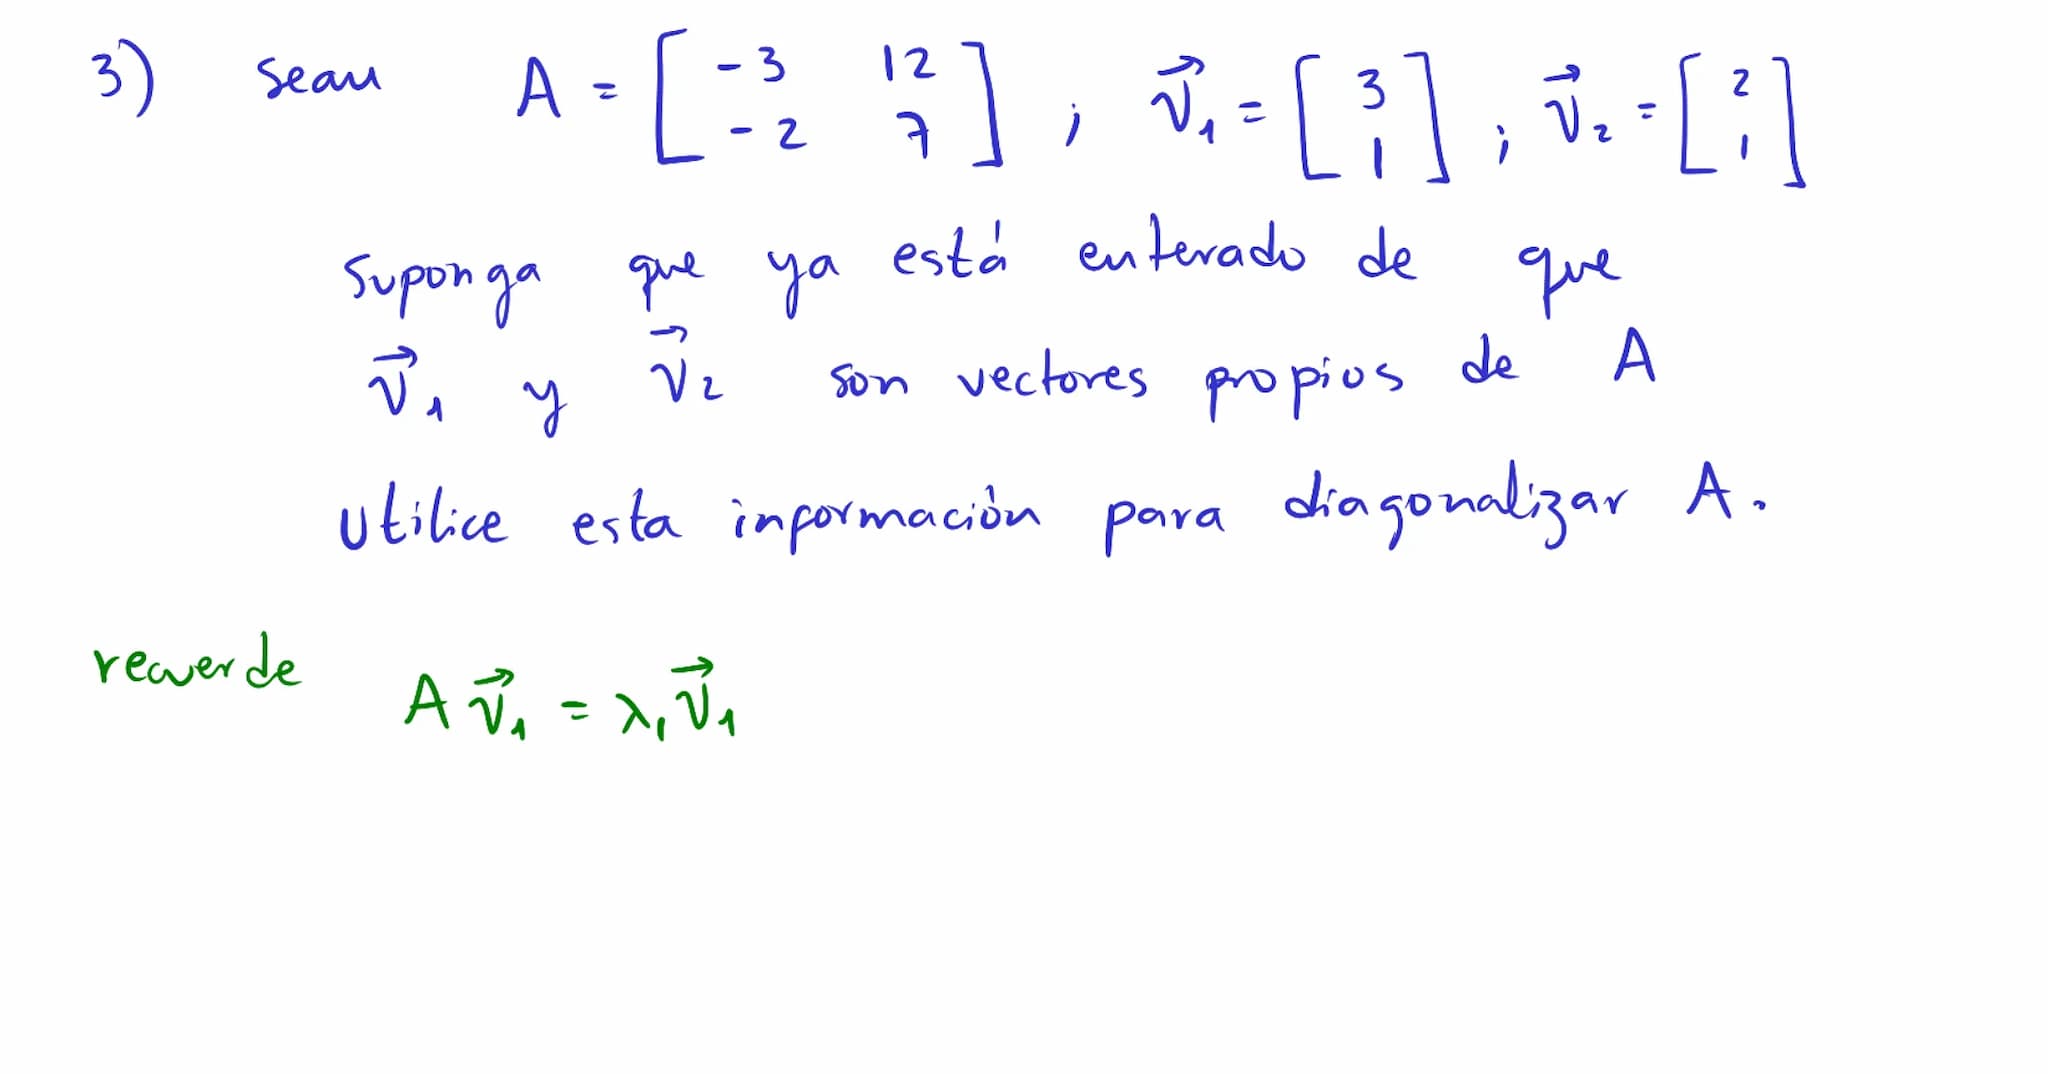 3) sean A = [ -3 12 ; -2 7 ] ; v⃗₁ = [ 3 ; 1 ] ; v⃗₂ = [ 2 ; 1 ]
suponga que ya está enterado de que
v⃗₁ y v⃗₂ son vectores propios de A
utilice esta información para diagonalizar A.
recuerde A v⃗₁ = λ₁ v⃗₁